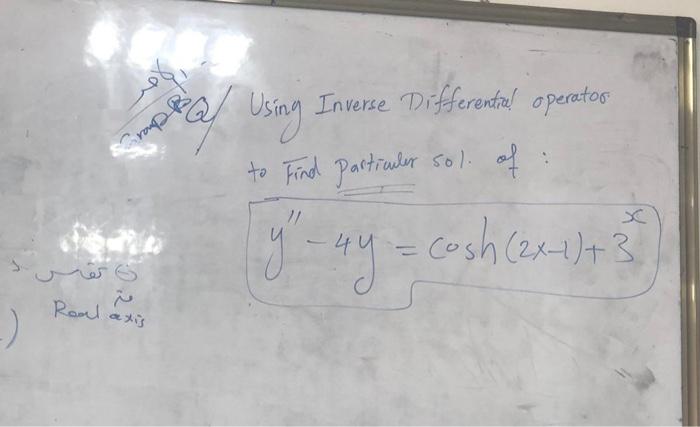 Q/ Using Inverse Differential operator
to Find particular sol. of :
y'' - 4y = cosh(2x-1) + 3^x
Real axis